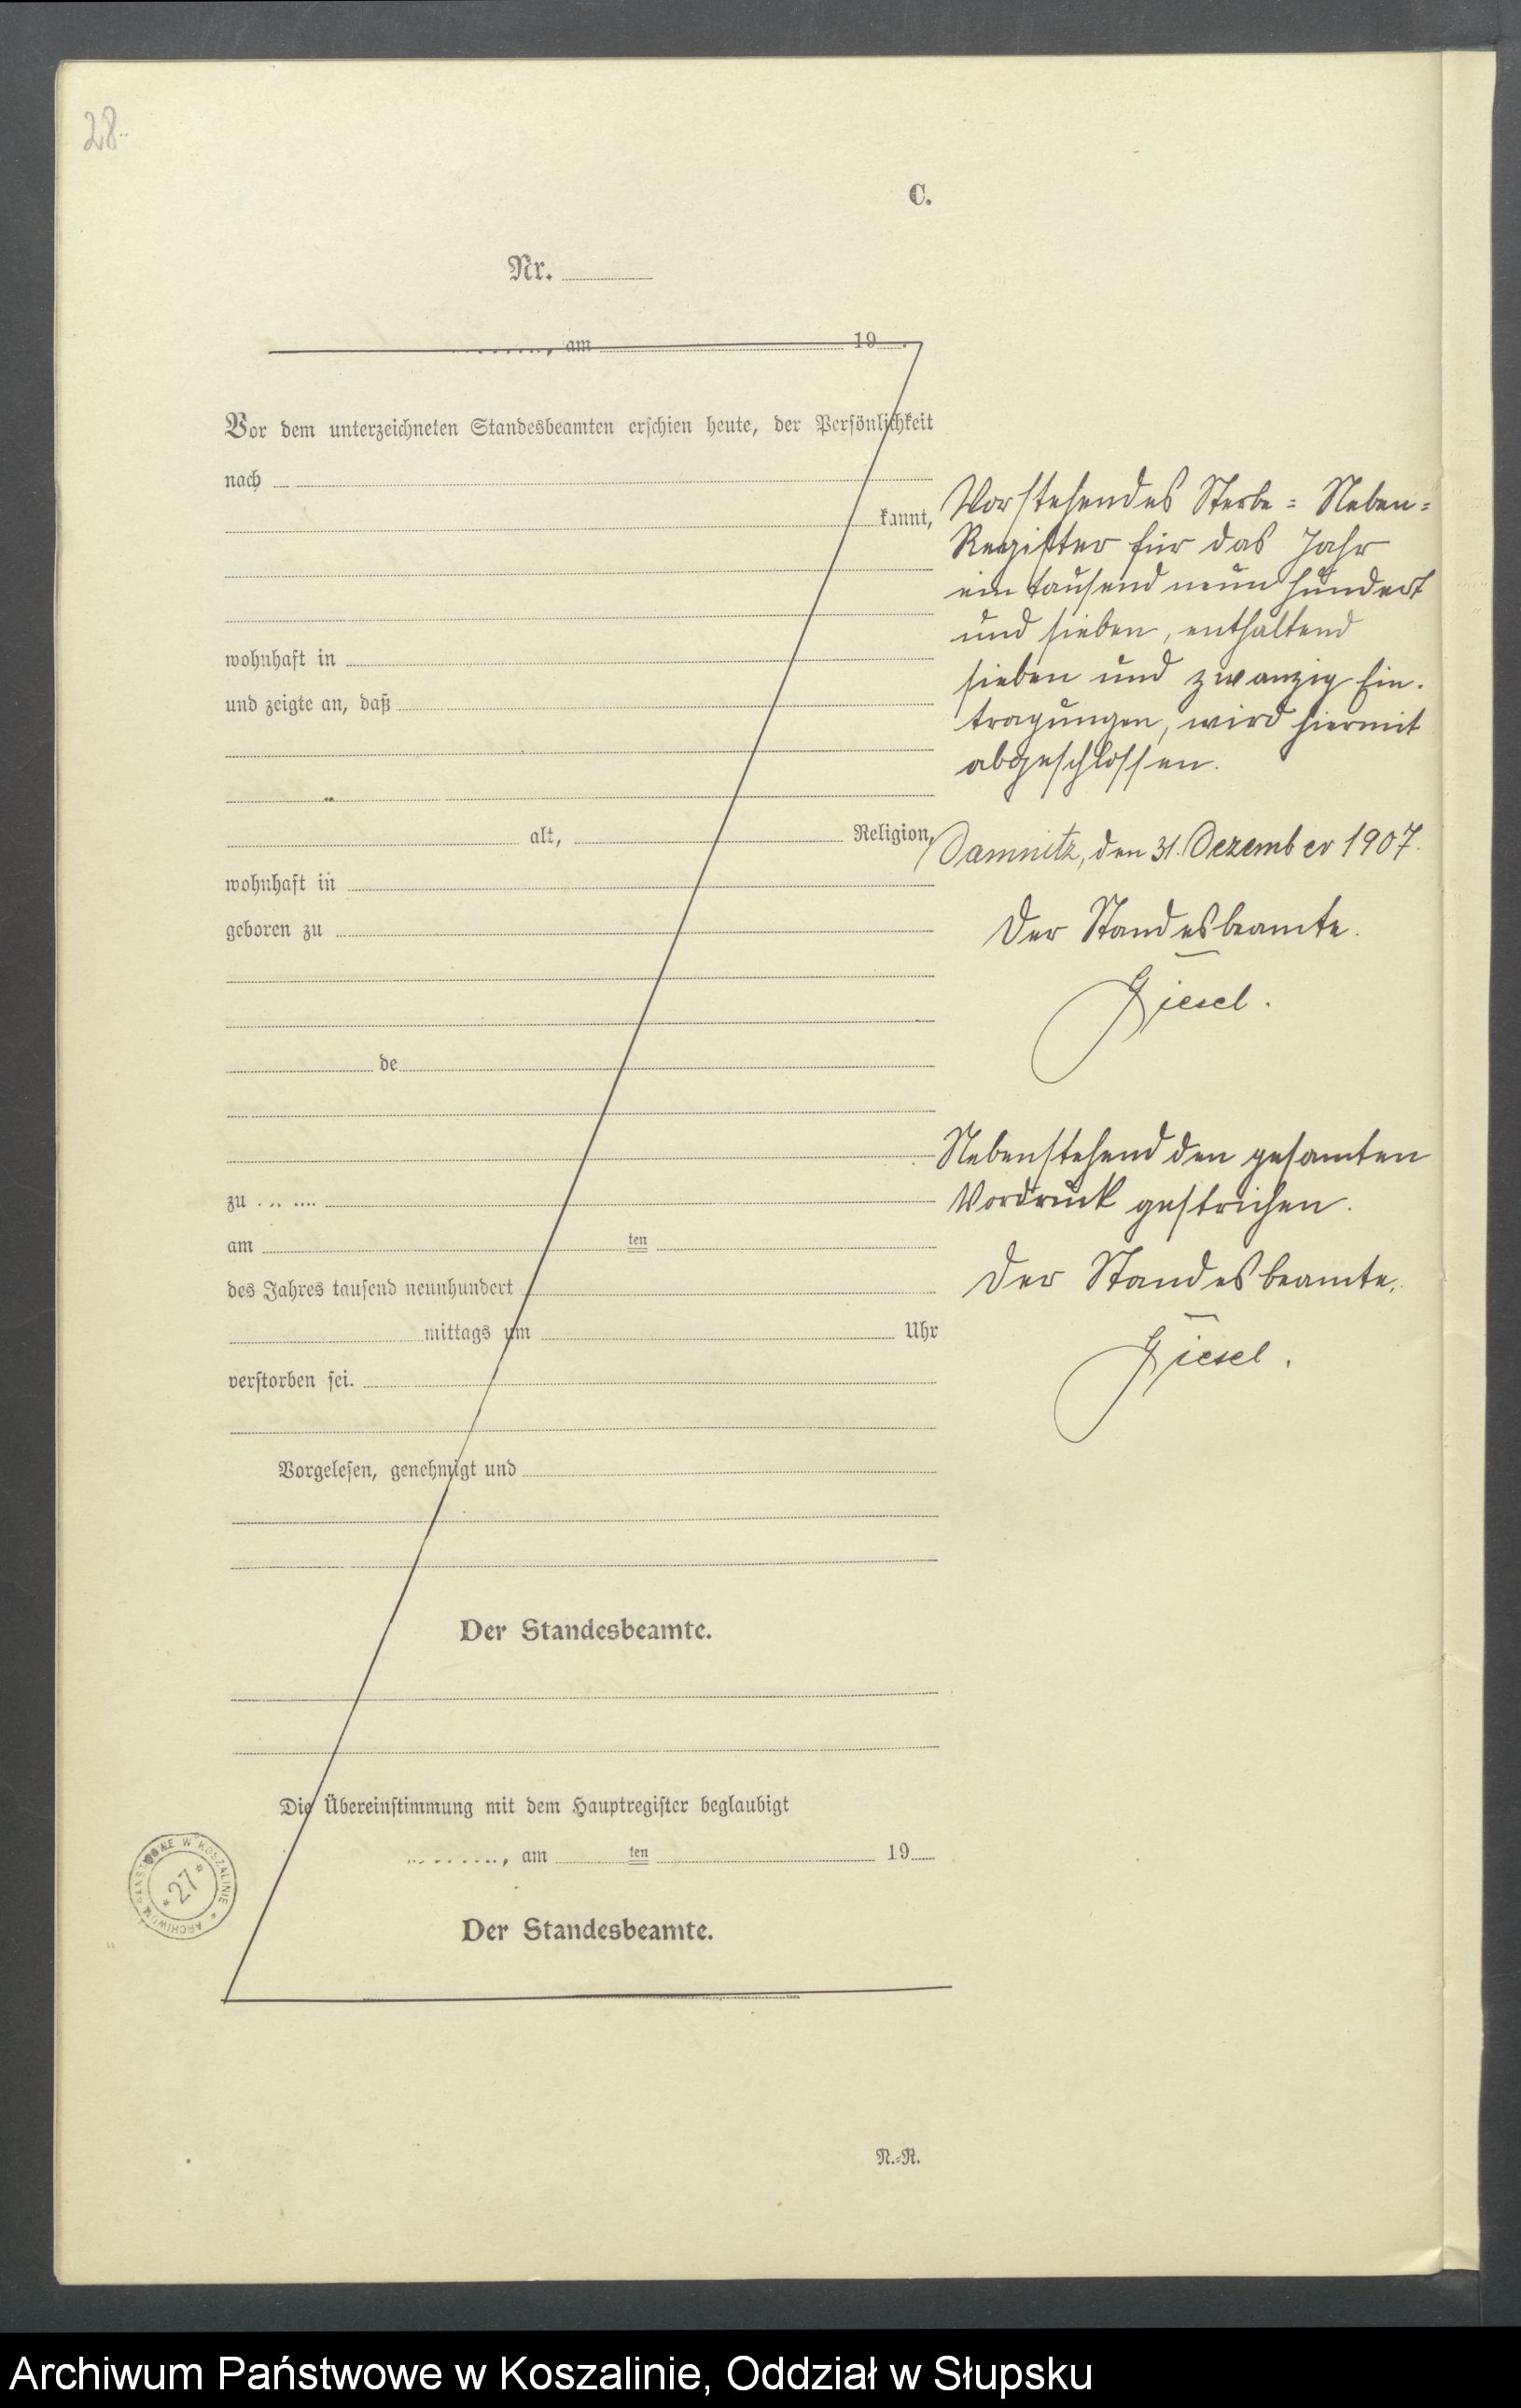 28.
C.
Nr.
, am 19 .
Vor dem unterzeichneten Standesbeamten erschien heute, der Persönlichkeit
nach
kannt,
wohnhaft in
und zeigte an, daß
alt, Religion,
wohnhaft in
geboren zu
de
zu
am ten
des Jahres tausend neunhundert
mittags um Uhr
verstorben sei.
Vorgelesen, genehmigt und
Der Standesbeamte.
Die Übereinstimmung mit dem Hauptregister beglaubigt
, am ten 19
Der Standesbeamte.
Vorstehendes Sterbe = Neben =
Register für das Jahr
ein tausend neun hundert
und sieben, enthaltend
sieben und zwanzig Ein-
tragungen, wird hiermit
abgeschlossen.
Damnitz, den 31. Dezember 1907.
Der Standesbeamte.
Giesel.
Nebenstehend den gesamten
Vordruck gestrichen.
Der Standesbeamte.
Giesel.
ARCHIWUM PAŃSTWOWE W KOSZALINIE
* 27 *
N.-R.
Archiwum Państwowe w Koszalinie, Oddział w Słupsku